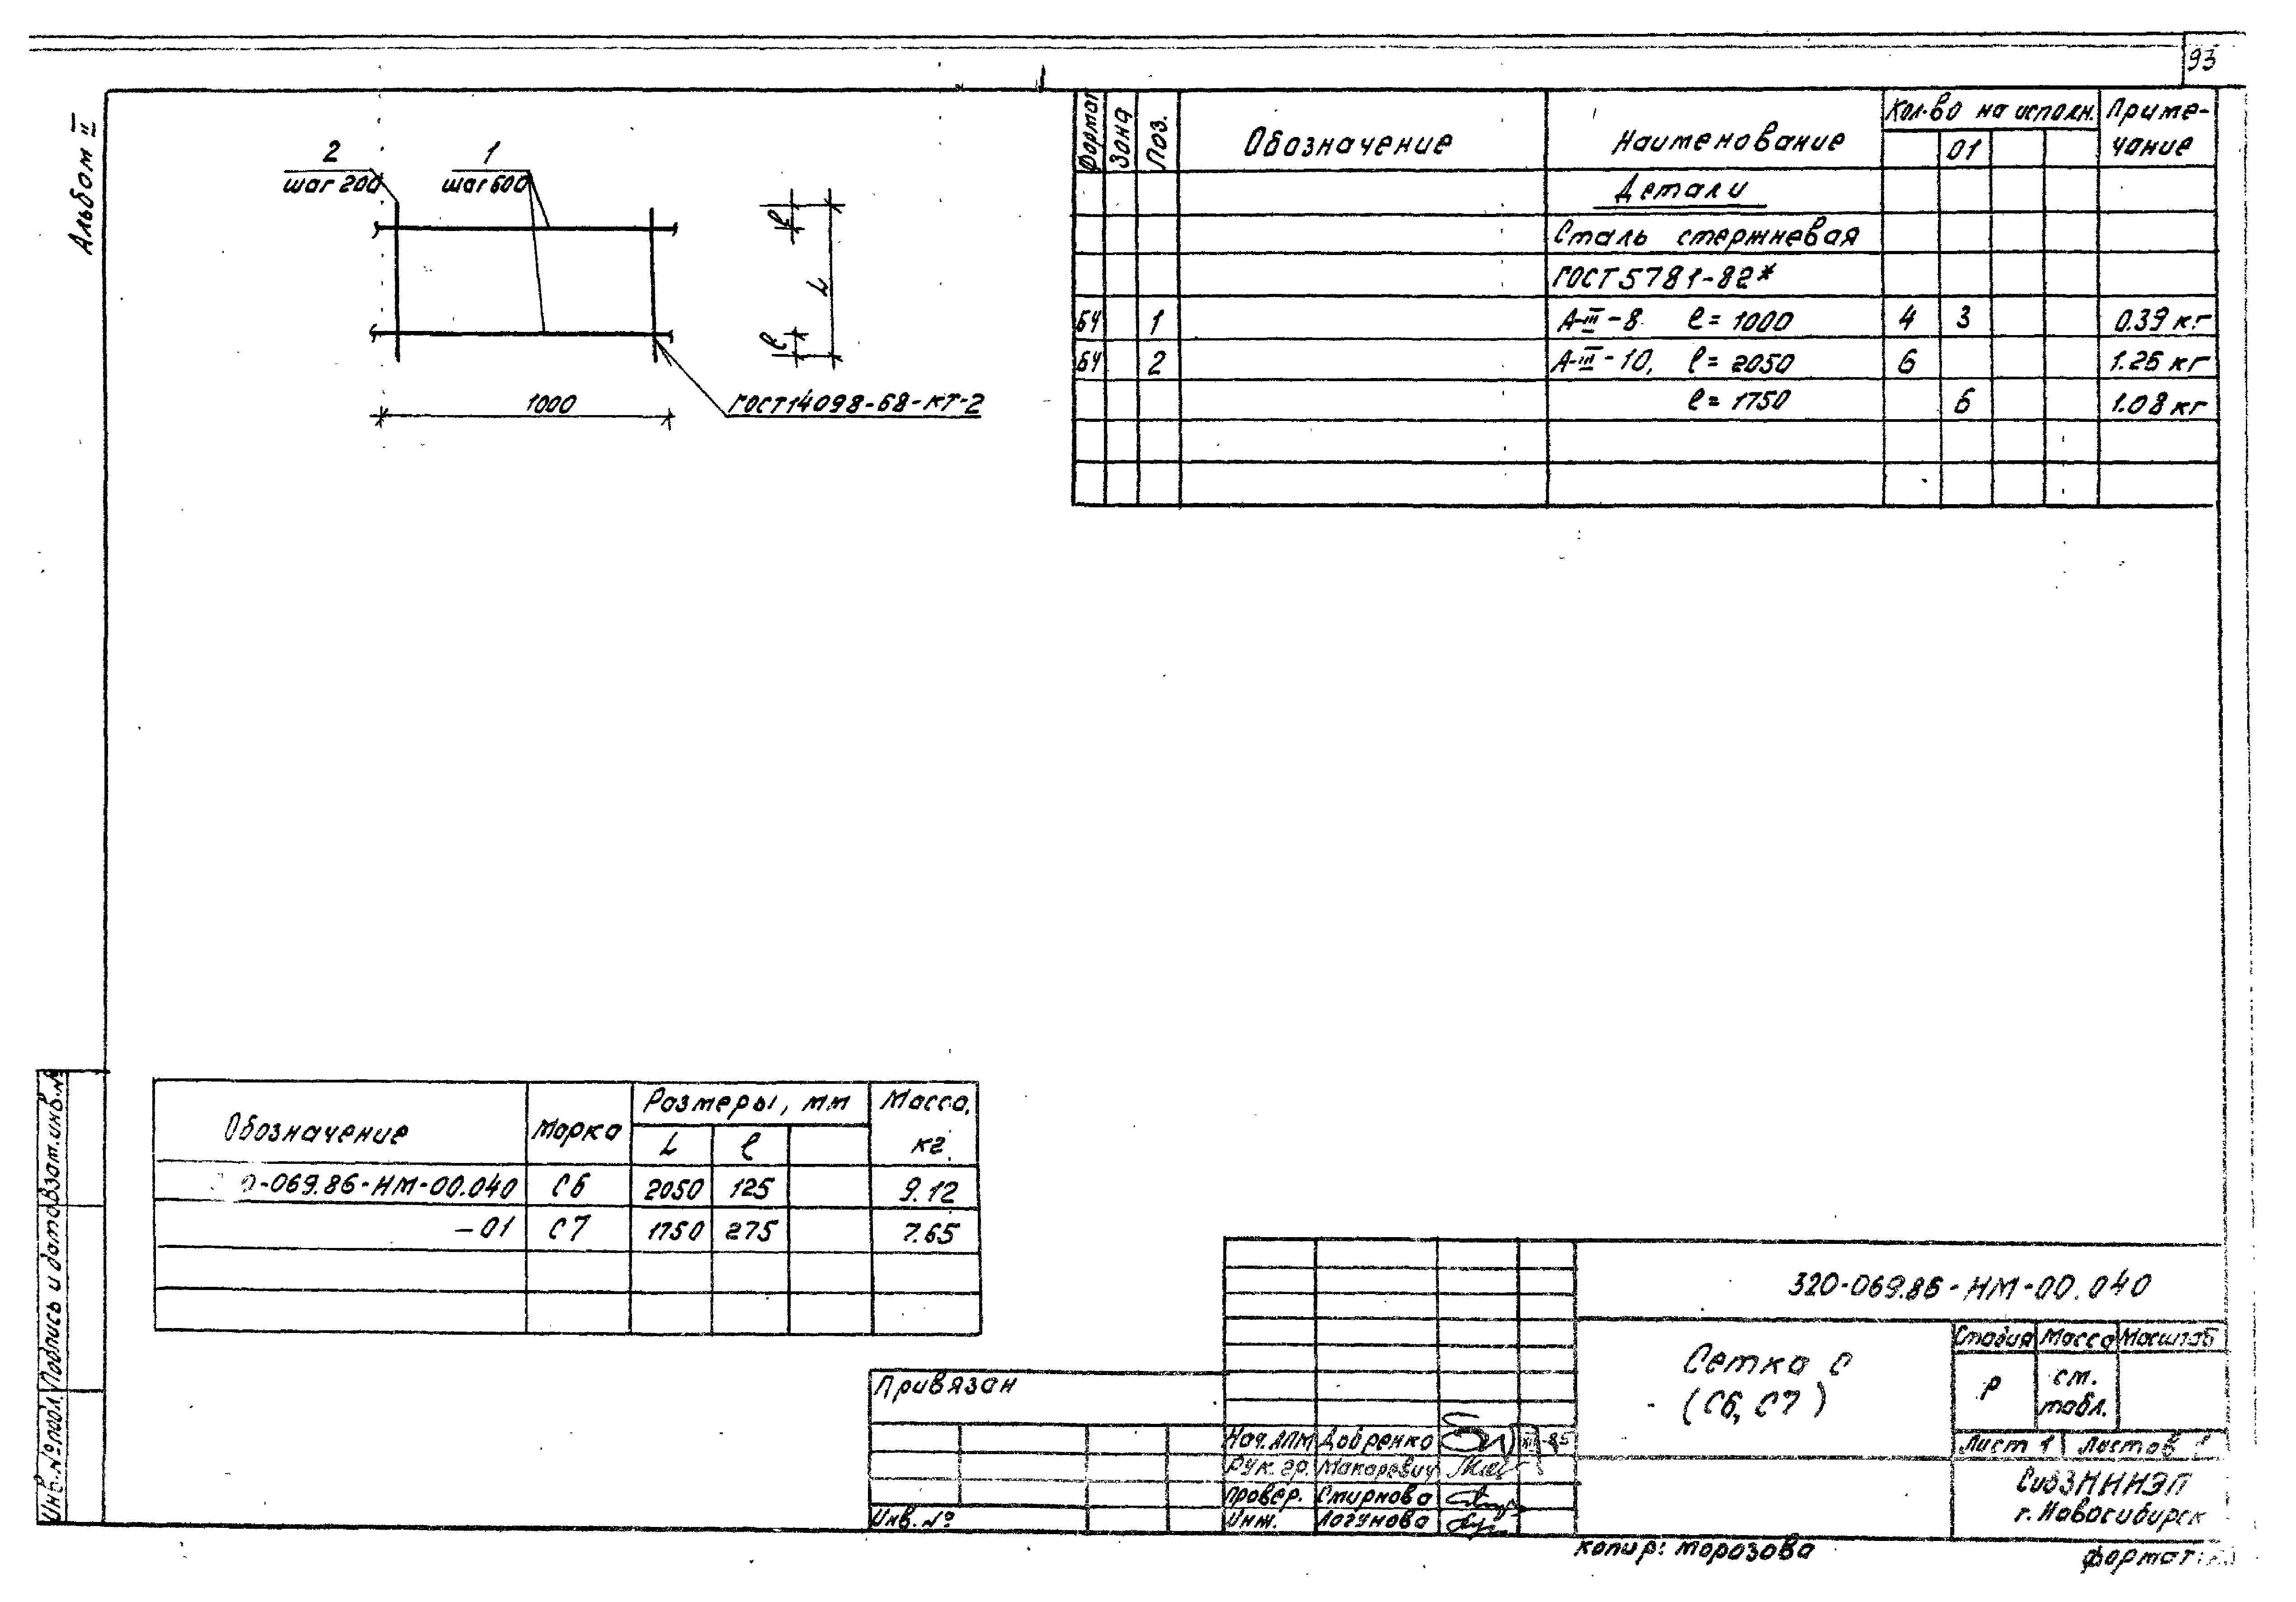 93
Альбом II
2
шаг 200
1
шаг 600
l
L
l
1000
ГОСТ 14098-68-КТ-2
Формат
Зона
Поз.
Обозначение
Наименование
Кол-во на исполн.
01
Приме-
чание
Детали
Сталь стержневая
ГОСТ 5781-82*
БЧ 1 А-III-8 l=1000 4 3 0.39 кг
БЧ 2 А-III-10, l=2050 6 1.26 кг
l=1750 6 1.08 кг
Обозначение
Марка
Размеры, мм
L
l
Масса,
кг.
0-069.86-НМ-00.040 С6 2050 125 9.12
-01 С7 1750 275 7.65
Инв.№подл.
Подпись и дата
Взам.инв.№
Привязан
Инв.№
Нач. АПМ Добренко
Рук. гр. Макаревич
Провер. Смирнова
Инж. Логунова
320-069.86-НМ-00.040
Сетка С
(С6, С7)
Стадия Масса Масштаб
Р см.
табл.
Лист 1 Листов 1
СибЗНИИЭП
г. Новосибирск
копир: Морозова
формат